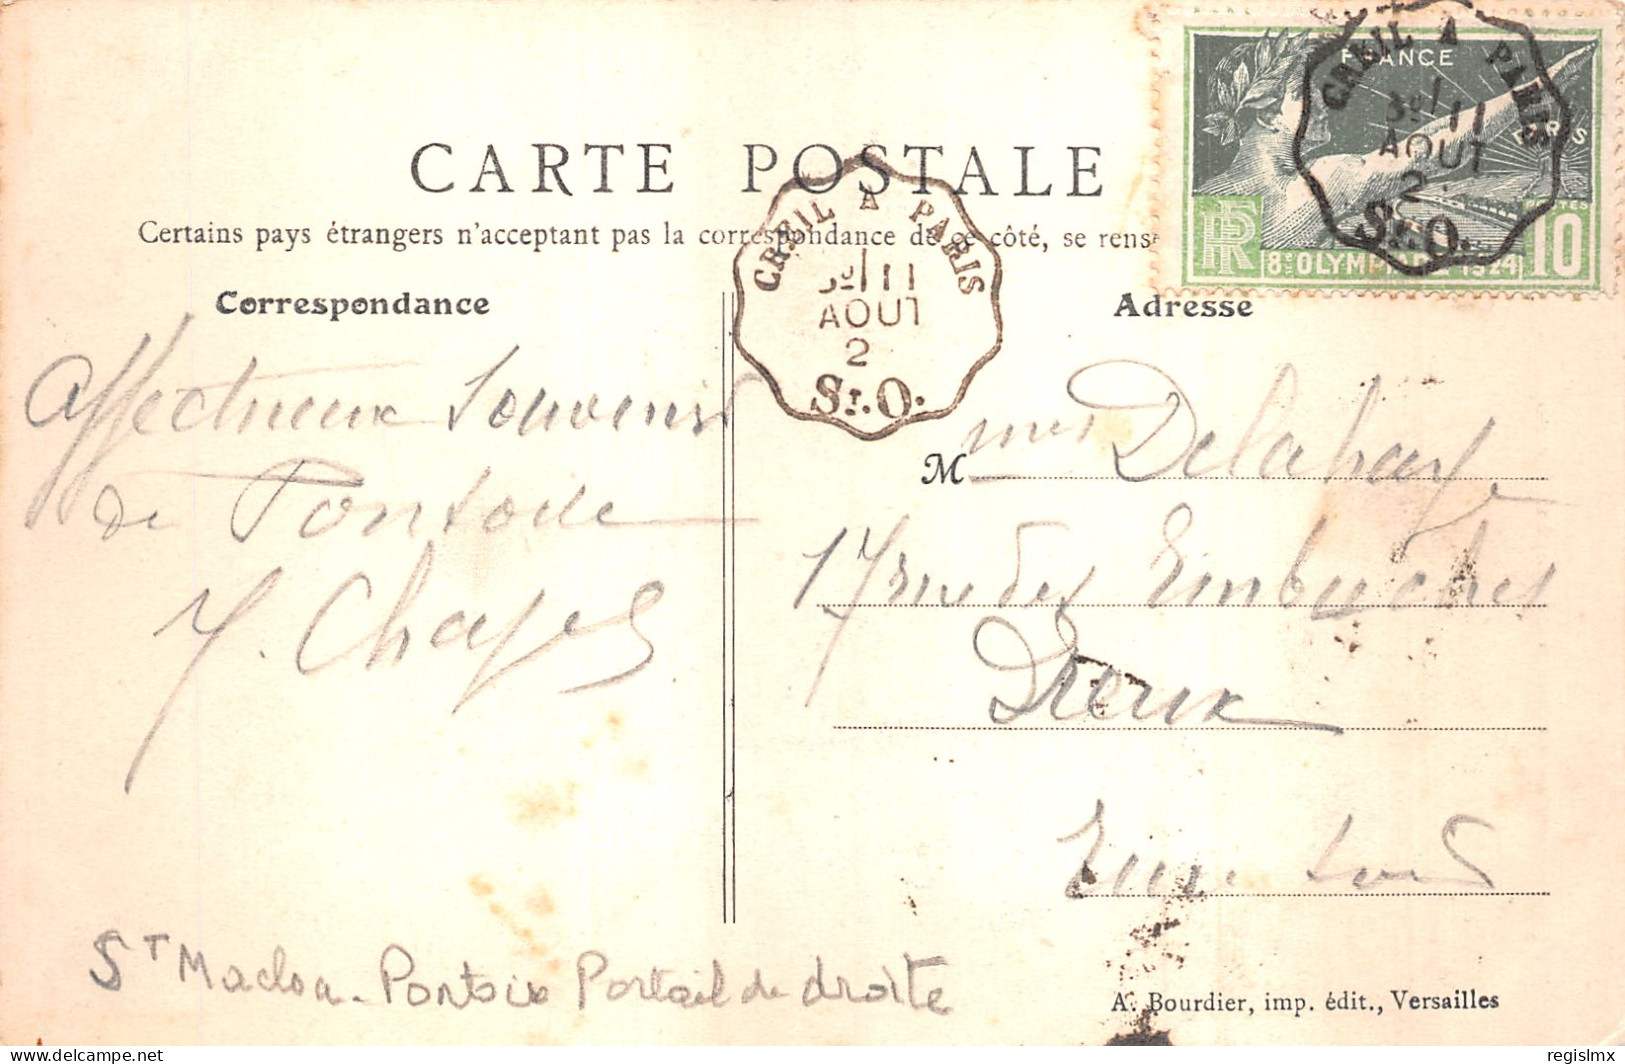 CARTE POSTALE
Certains pays étrangers n'acceptent pas la correspondance de ce côté, se rens
Correspondance
Adresse
FRANCE
PARIS
POSTES
RF
8e OLYMPIADE 1924
10
CREIL A PARIS
3e/11
AOUT
2
St.O.
CREIL A PARIS
3e/11
AOUT
2
St.O.
Affectueux Souvenir
de Pontoise
Y. Chapel
Mmes Delahaye
17 rue des Embuches
Dreux
Eure Loir
St Maclou - Pontoise Portail de droite
A. Bourdier, imp. édit., Versailles
delcampe.net
regislmx